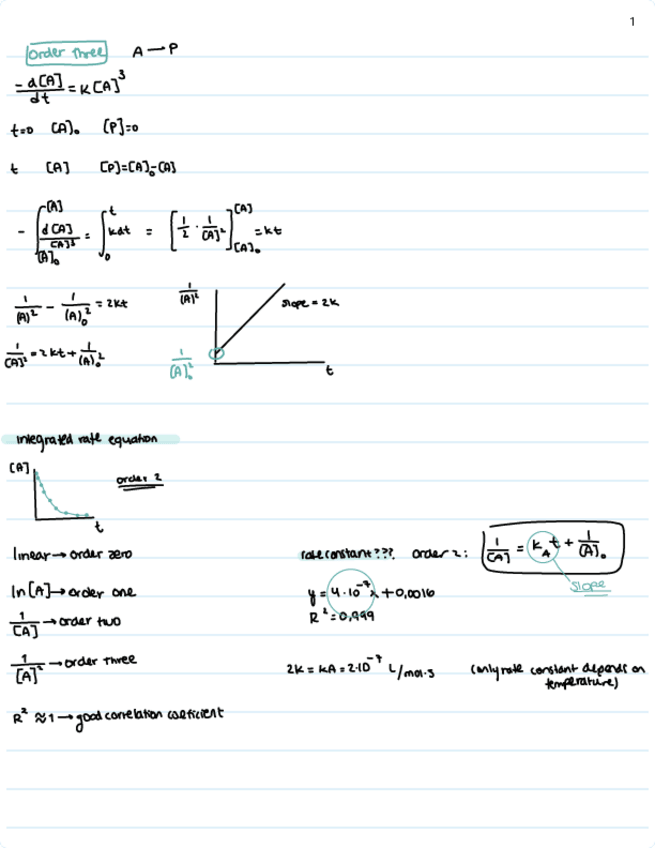 1
Order Three A → P
-d[A]/dt = K[A]³
t=0 [A]₀ [P]=0
t [A] [P]=[A]₀-[A]
- ∫[A]₀^[A] d[A]/[A]³ = ∫₀^t kdt = [1/2 · 1/[A]²][A]₀^[A] = kt
1/[A]² - 1/[A]₀² = 2kt
1/[A]² = 2kt + 1/[A]₀²
1/[A]² slope = 2k
1/[A]₀² t
integrated rate equation
[A] order 2
t
linear → order zero
ln[A] → order one
1/[A] → order two
1/[A]² → order three
R² ≈ 1 → good correlation coeficient
rate constant???. order 2: 1/[A] = k_A t + 1/[A]₀
slope
y = 4·10⁻⁷x + 0,0016
R² = 0,999
2K = kA = 2·10⁻⁷ L/mol·s (only rate constant depends on
temperature)